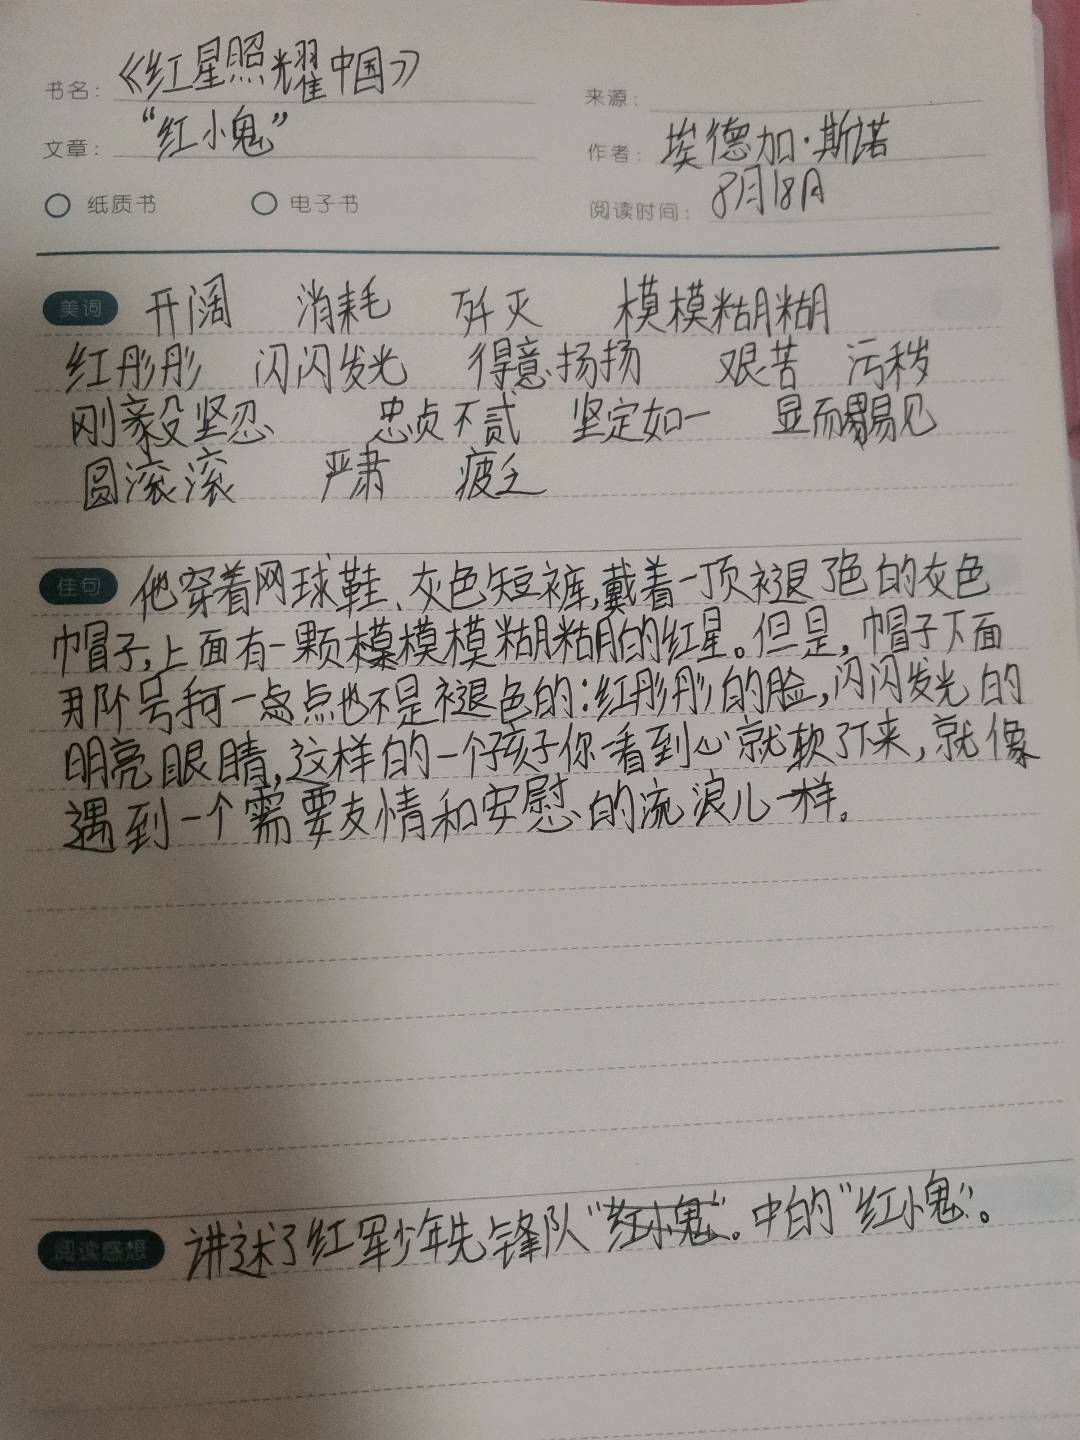 书名：《红星照耀中国》
来源：
文章："红小鬼"
作者：埃德加·斯诺
纸质书 电子书
阅读时间：8月18日
美词 开阔 消耗 歼灭 模模糊糊
红彤彤 闪闪发光 得意扬扬 艰苦 污秽
刚毅坚忍 忠贞不贰 坚定如一 显而易见
圆滚滚 严肃 疲乏
佳句 他穿着网球鞋、灰色短裤,戴着一顶褪了色的灰色
帽子,上面有一颗模模糊糊的红星。但是,帽子下面
那个号手可一点点也不是褪色的:红彤彤的脸,闪闪发光的
明亮眼睛,这样的一个孩子你一看到心就软了下来,就像
遇到一个需要友情和安慰的流浪儿一样。
阅读感想 讲述了红军少年先锋队"红小鬼"。中的"红小鬼"。